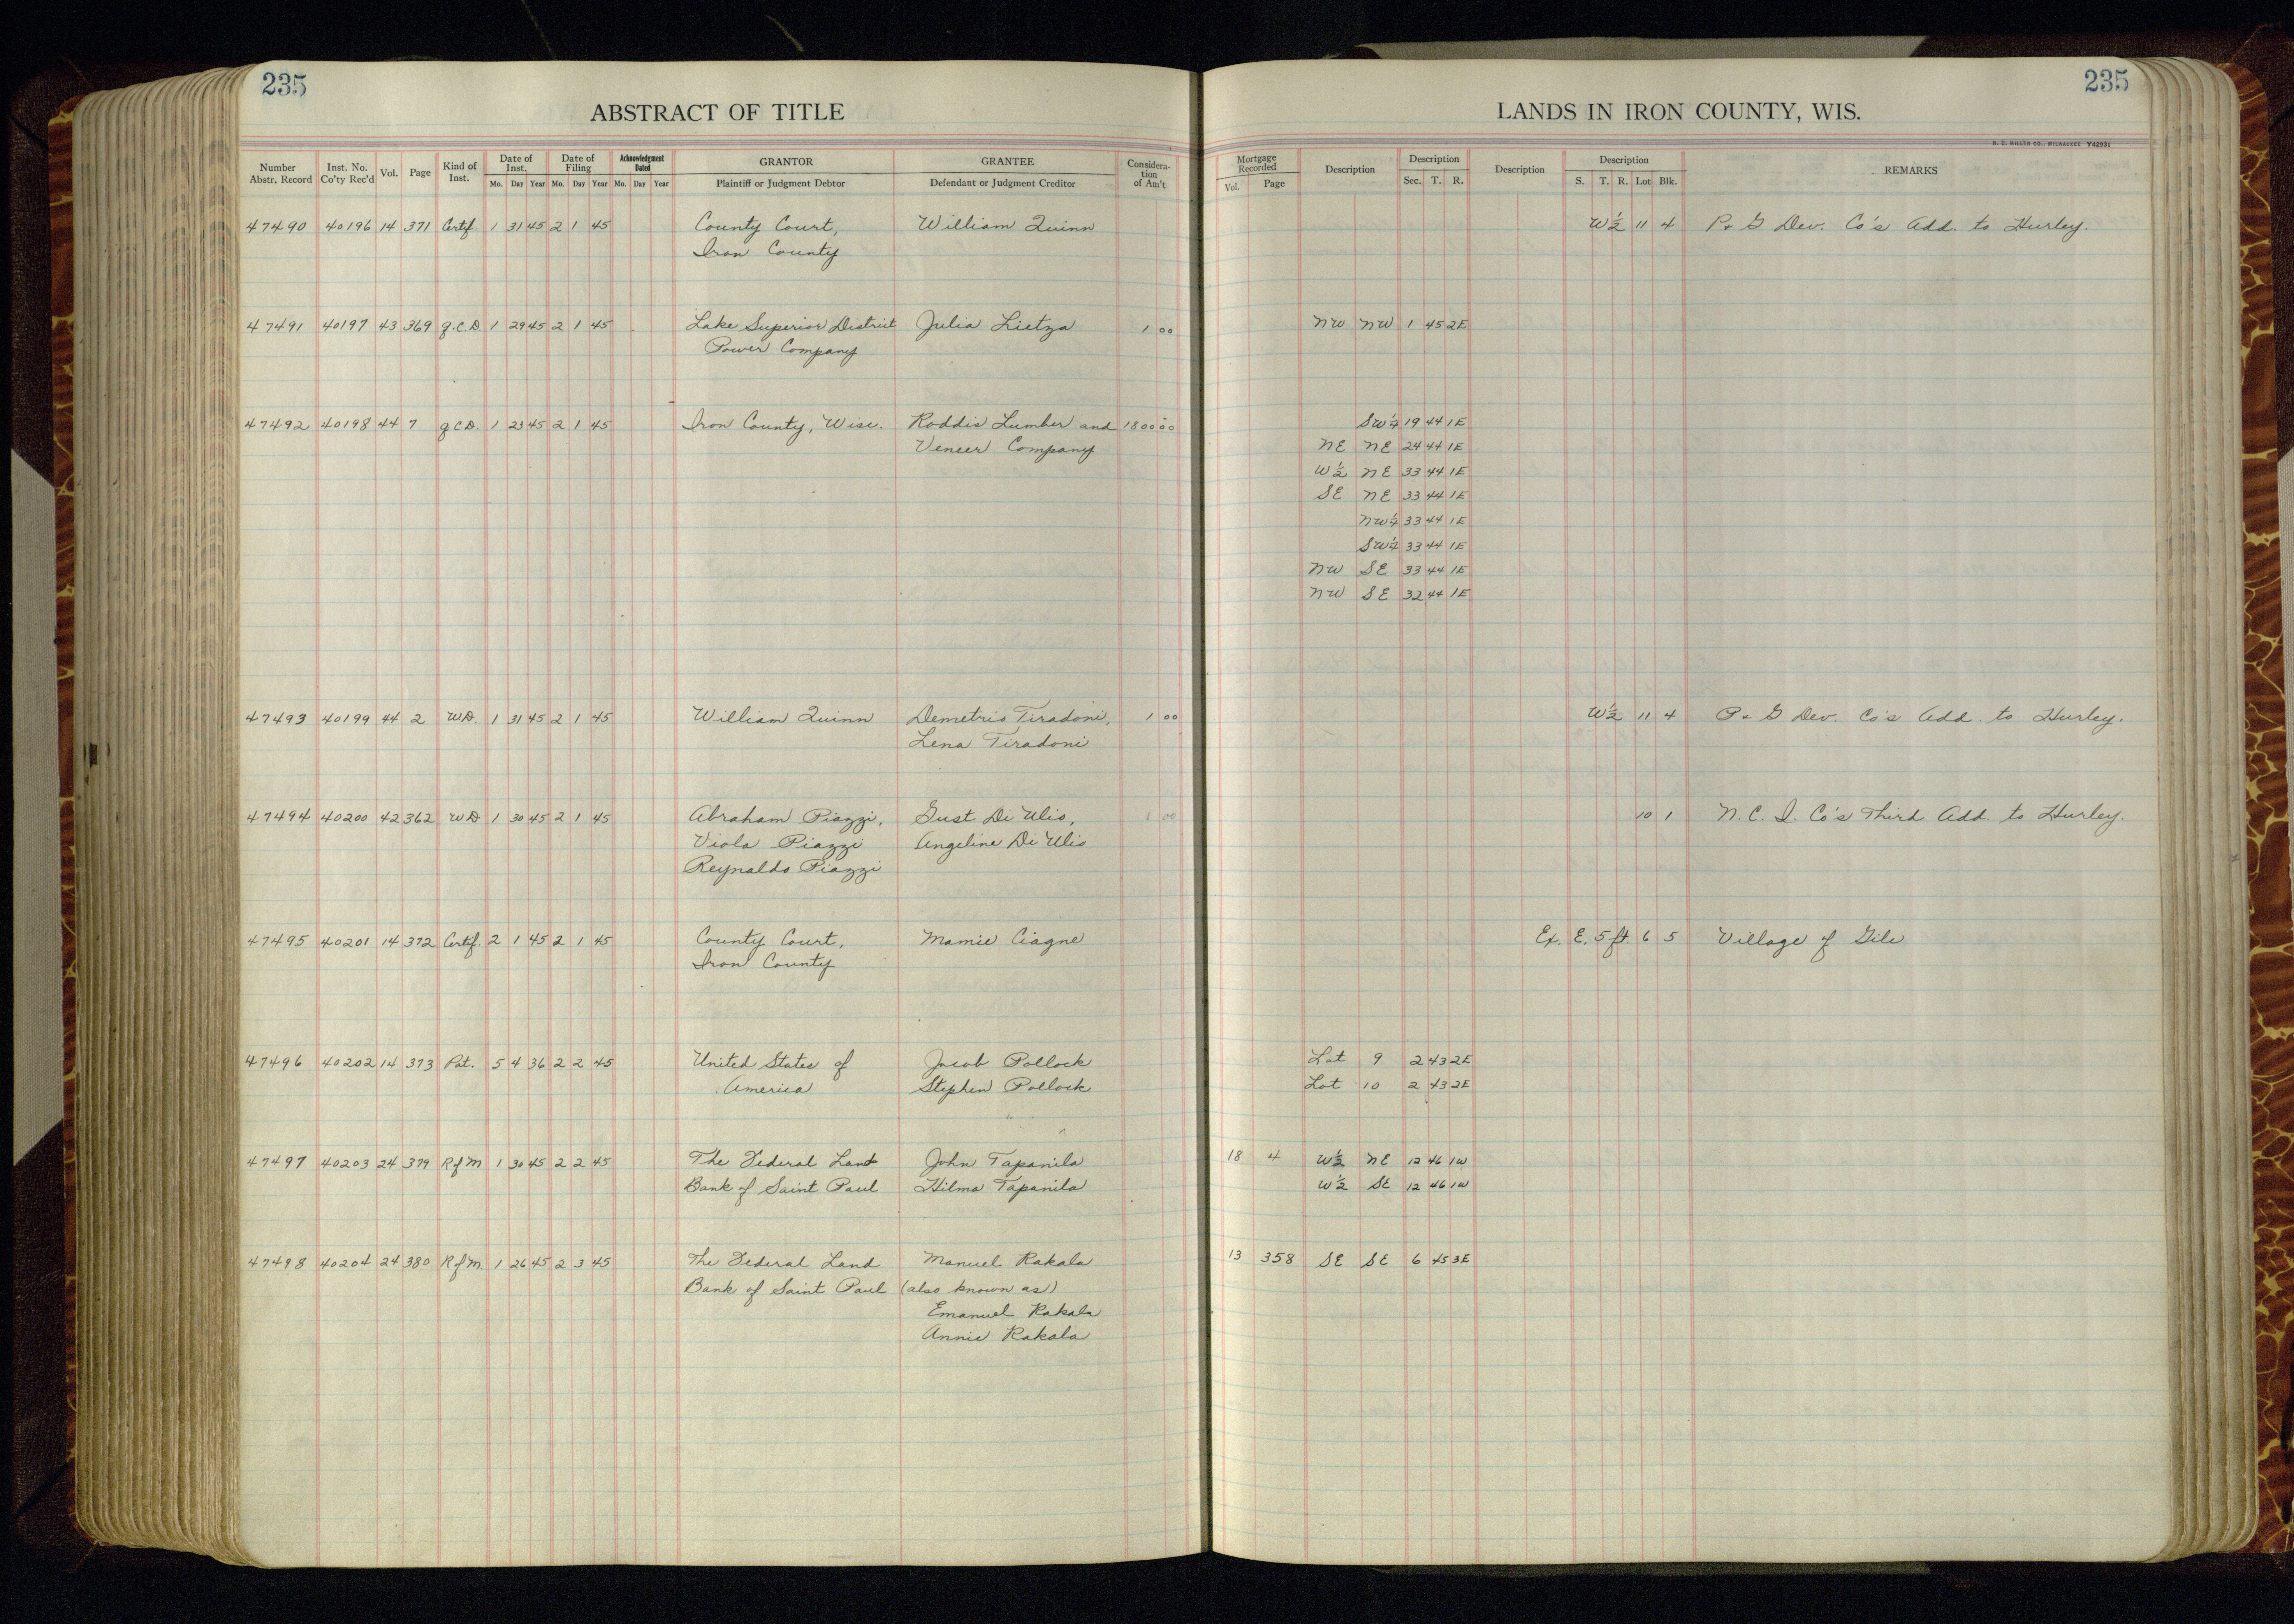 235
235
ABSTRACT OF TITLE
LANDS IN IRON COUNTY, WIS.
H. C. MILLER CO., MILWAUKEE Y42931
Number Abstr. Record
Inst. No. Co'ty Rec'd
Vol.
Page
Kind of Inst.
Date of Inst.
Mo. Day Year
Date of Filing
Mo. Day Year
Acknowledgment Dated
Mo. Day Year
GRANTOR
Plaintiff or Judgment Debtor
GRANTEE
Defendant or Judgment Creditor
Considera-tion of Am't
Mortgage Recorded
Vol. Page
Description
Description
Sec. T. R.
Description
Description
S. T. R. Lot Blk.
REMARKS
47490 40196 14 371 Certif. 1 31 45 2 1 45 County Court, William Quinn W½ 11 4 P & G Dev. Co's Add. to Hurley.
Iron County
47491 40197 43 369 Q.C.D. 1 29 45 2 1 45 Lake Superior District Julia Lietza 1 00 NW NW 1 45 2E
Power Company
47492 40198 44 7 Q C D. 1 23 45 2 1 45 Iron County, Wisc. Roddis Lumber and 1800 00 SW¼ 19 44 1E
Veneer Company NE NE 24 44 1E
W½ NE 33 44 1E
SE NE 33 44 1E
NW¼ 33 44 1E
SW¼ 33 44 1E
NW SE 33 44 1E
NW SE 32 44 1E
47493 40199 44 2 WD. 1 31 45 2 1 45 William Quinn Demetrio Tiradoni, 1 00 W½ 11 4 P & G Dev. Co's Add. to Hurley.
Lena Tiradoni
47494 40200 42 362 WD 1 30 45 2 1 45 Abraham Piazzi, Gust Di Ulio, 1 00 10 1 N. C. I. Co's Third Add. to Hurley.
Viola Piazzi Angeline Di Ulio
Reynaldo Piazzi
47495 40201 14 372 Certif. 2 1 45 2 1 45 County Court, Mamie Ciagne Ex. E. 5 ft. 6 5 Village of Gile
Iron County
47496 40202 14 373 Pat. 5 4 36 2 2 45 United States of Jacob Pollock Lot 9 2 43 2E
America Stephen Pollock Lot 10 2 43 2E
47497 40203 24 379 R of M 1 30 45 2 2 45 The Federal Land John Tapanila 18 4 W½ NE 12 46 1W
Bank of Saint Paul Hilma Tapanila W½ SE 12 46 1W
47498 40204 24 380 R of M. 1 26 45 2 3 45 The Federal Land Manuel Rakala 13 358 SE SE 6 45 3E
Bank of Saint Paul (also known as)
Emanuel Rakala
Annie Rakala